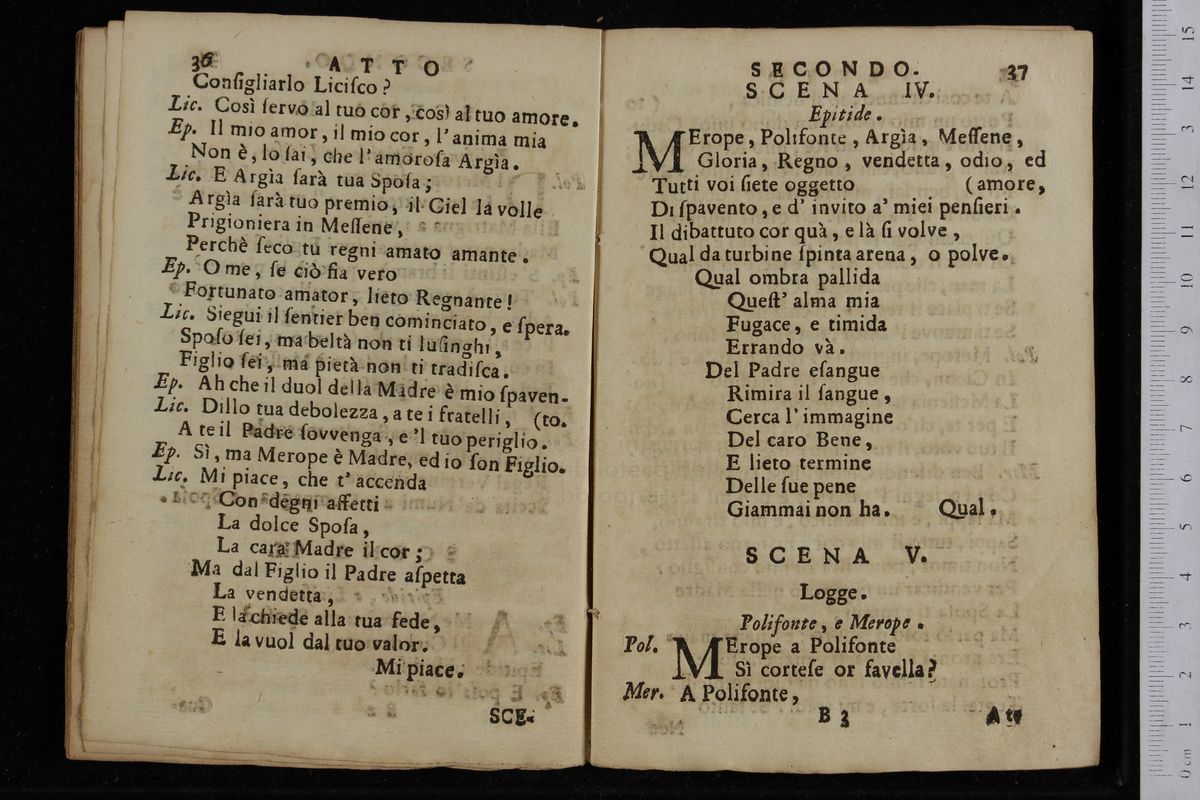 36 ATTO
Conſigliarlo Liciſco?
Lic. Così ſervo al tuo cor, così al tuo amore.
Ep. Il mio amor, il mio cor, l'anima mia
Non è, lo ſai, che l'amoroſa Argìa.
Lic. E Argìa ſarà tua Spoſa;
Argìa ſarà tuo premio, il Ciel la volle
Prigioniera in Meſſene,
Perchè ſeco tu regni amato amante.
Ep. O me, ſe ciò ſia vero
Fortunato amator, lieto Regnante!
Lic. Siegui il ſentier ben cominciato, e ſpera.
Spoſo ſei, ma beltà non ti luſinghi,
Figlio ſei, ma pietà non ti tradiſca.
Ep. Ah che il duol della Madre è mio ſpaven-
Lic. Dillo tua debolezza, a te i fratelli, (to.
A te il Padre ſovvenga, e 'l tuo periglio.
Ep. Sì, ma Merope è Madre, ed io ſon Figlio.
Lic. Mi piace, che t' accenda
Con degni affetti
La dolce Spoſa,
La cara Madre il cor;
Ma dal Figlio il Padre aſpetta
La vendetta,
E la chiede alla tua fede,
E la vuol dal tuo valor.
Mi piace.
SCE-
SECONDO. 37
SCENA IV.
Epitide.
MErope, Polifonte, Argìa, Meſſene,
Gloria, Regno, vendetta, odio, ed
Tutti voi ſiete oggetto (amore,
Di ſpavento, e d' invito a' miei penſieri.
Il dibattuto cor quà, e là ſi volve,
Qual da turbine ſpinta arena, o polve.
Qual ombra pallida
Queſt' alma mia
Fugace, e timida
Errando và.
Del Padre eſangue
Rimira il ſangue,
Cerca l' immagine
Del caro Bene,
E lieto termine
Delle ſue pene
Giammai non ha. Qual.
SCENA V.
Logge.
Polifonte, e Merope.
Pol. MErope a Polifonte
Sì corteſe or favella?
Mer. A Polifonte,
B 3 A te